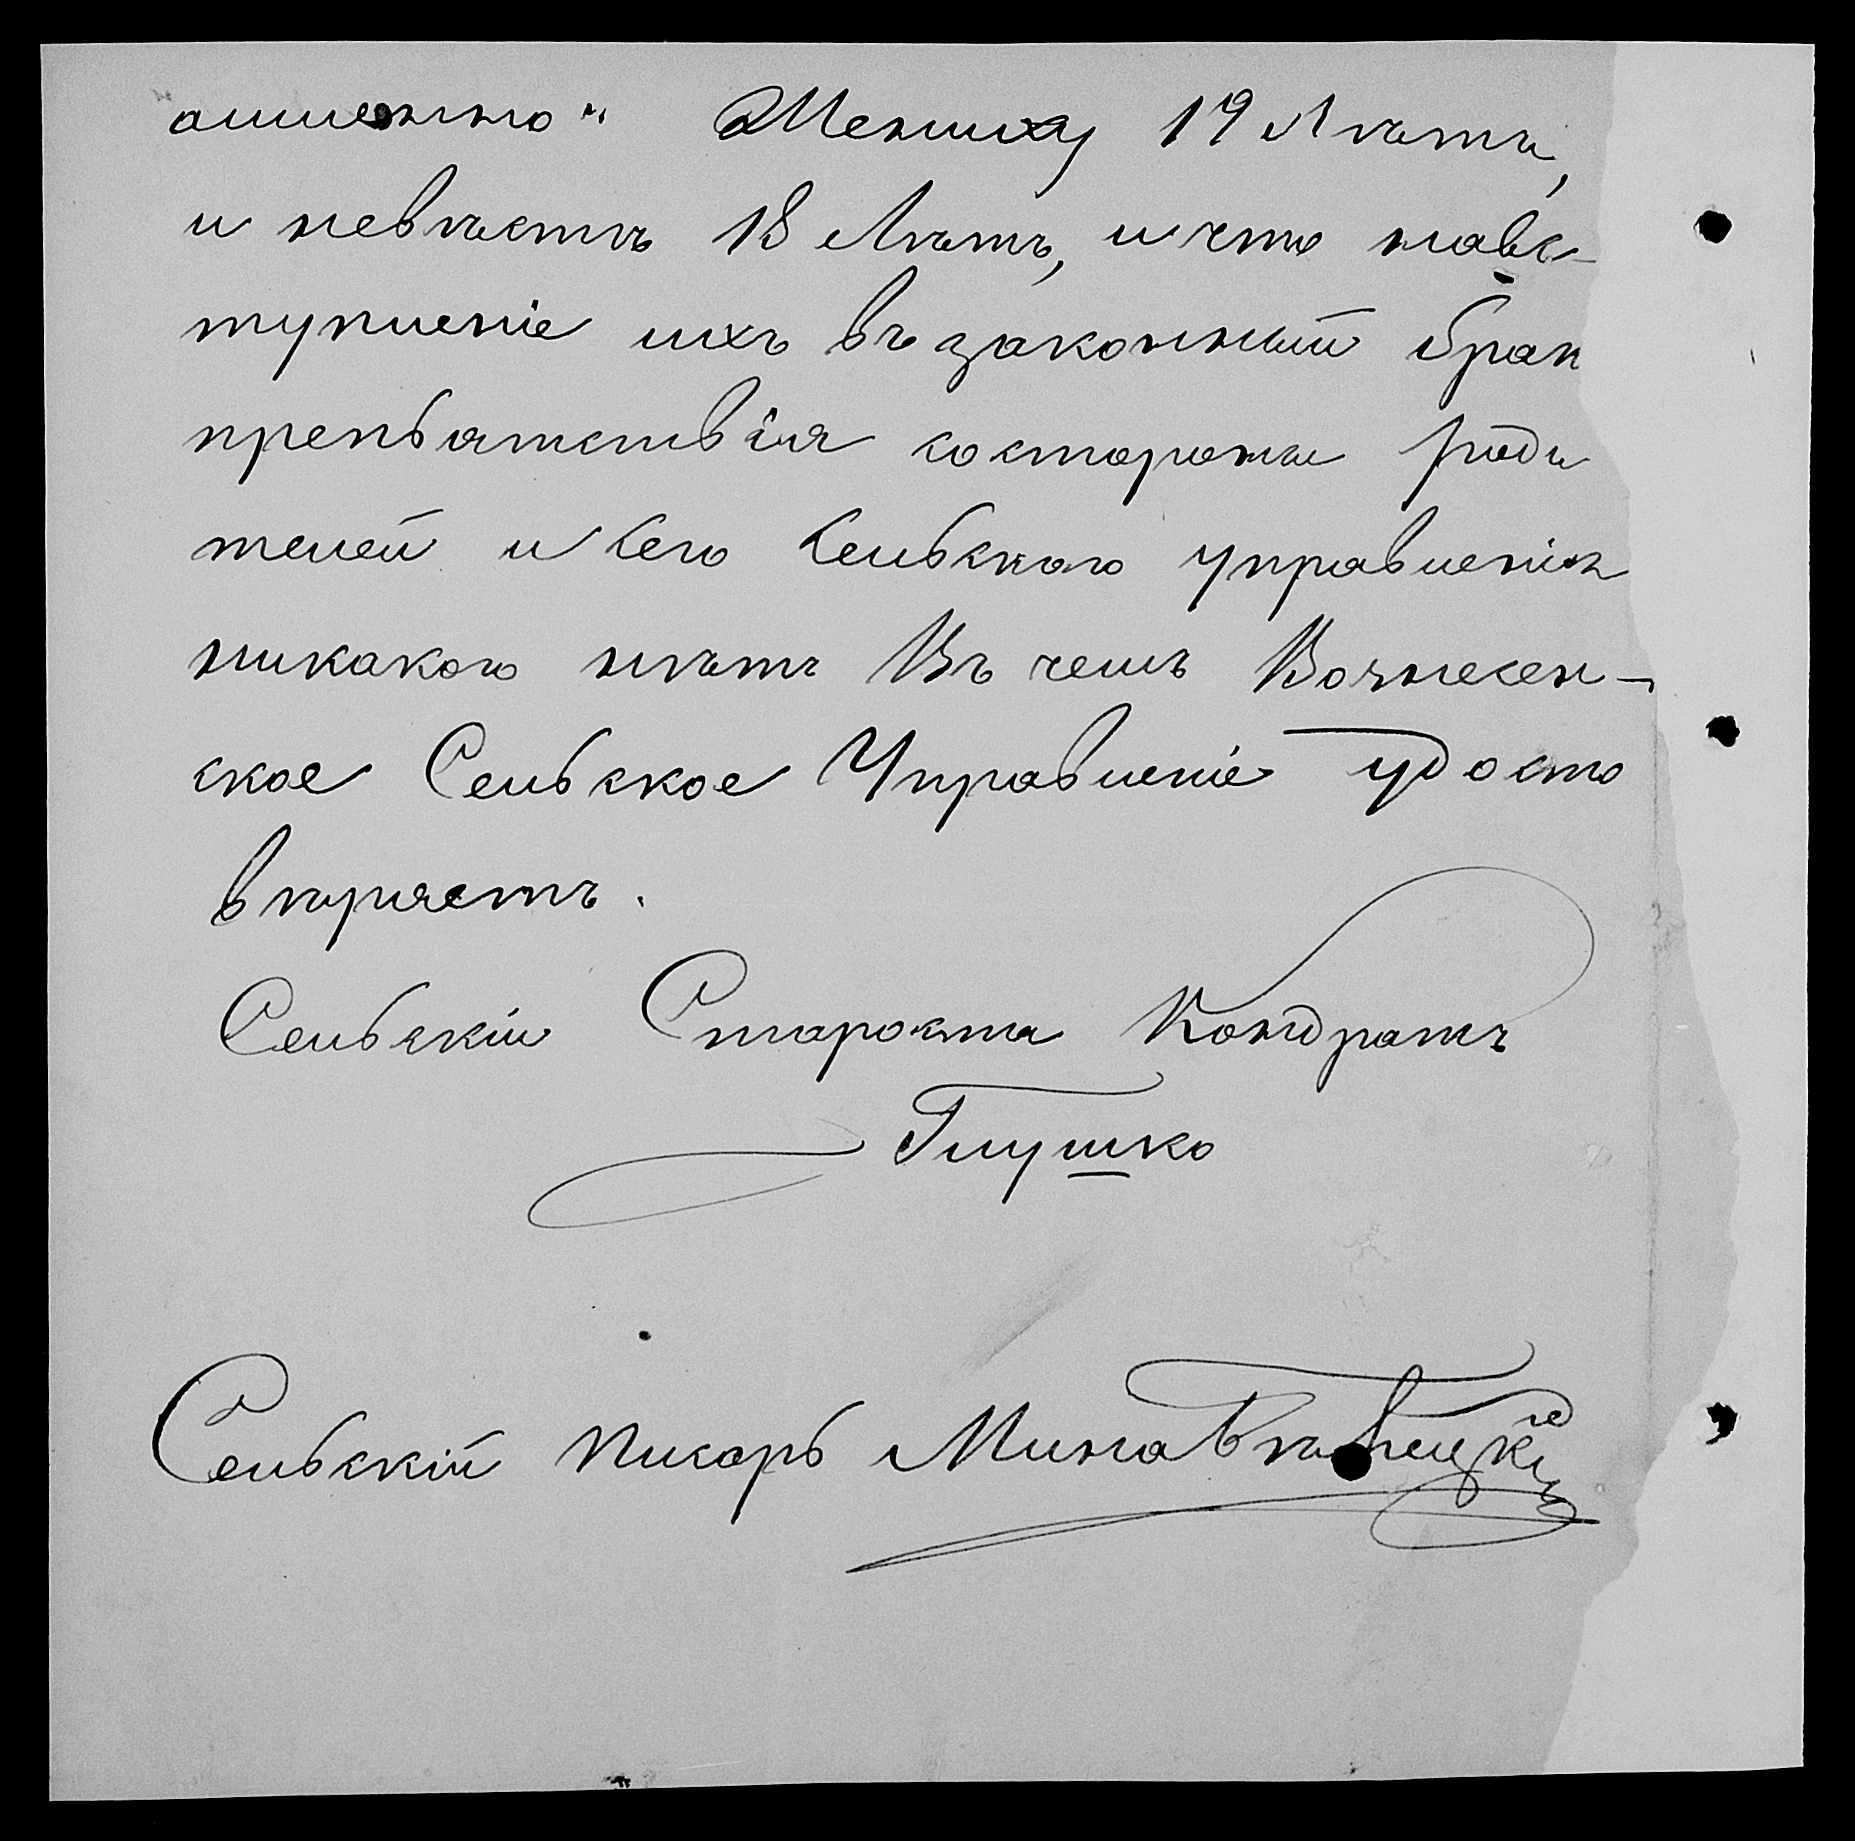 Жениху 19 Лѣтъ,
и невѣстѣ 18 Лѣтъ, и что навс-
тупленіе ихъ въ законный брак
препятствія состороны роди
телей и сего сельскаго управленія
никакого нѣтъ Въ чемъ Вознесен-
ское Сельское Управленіе удосто
вѣряетъ.
Сельскій Староста Кондратъ
Глушко
Сельскій Писарь Мина